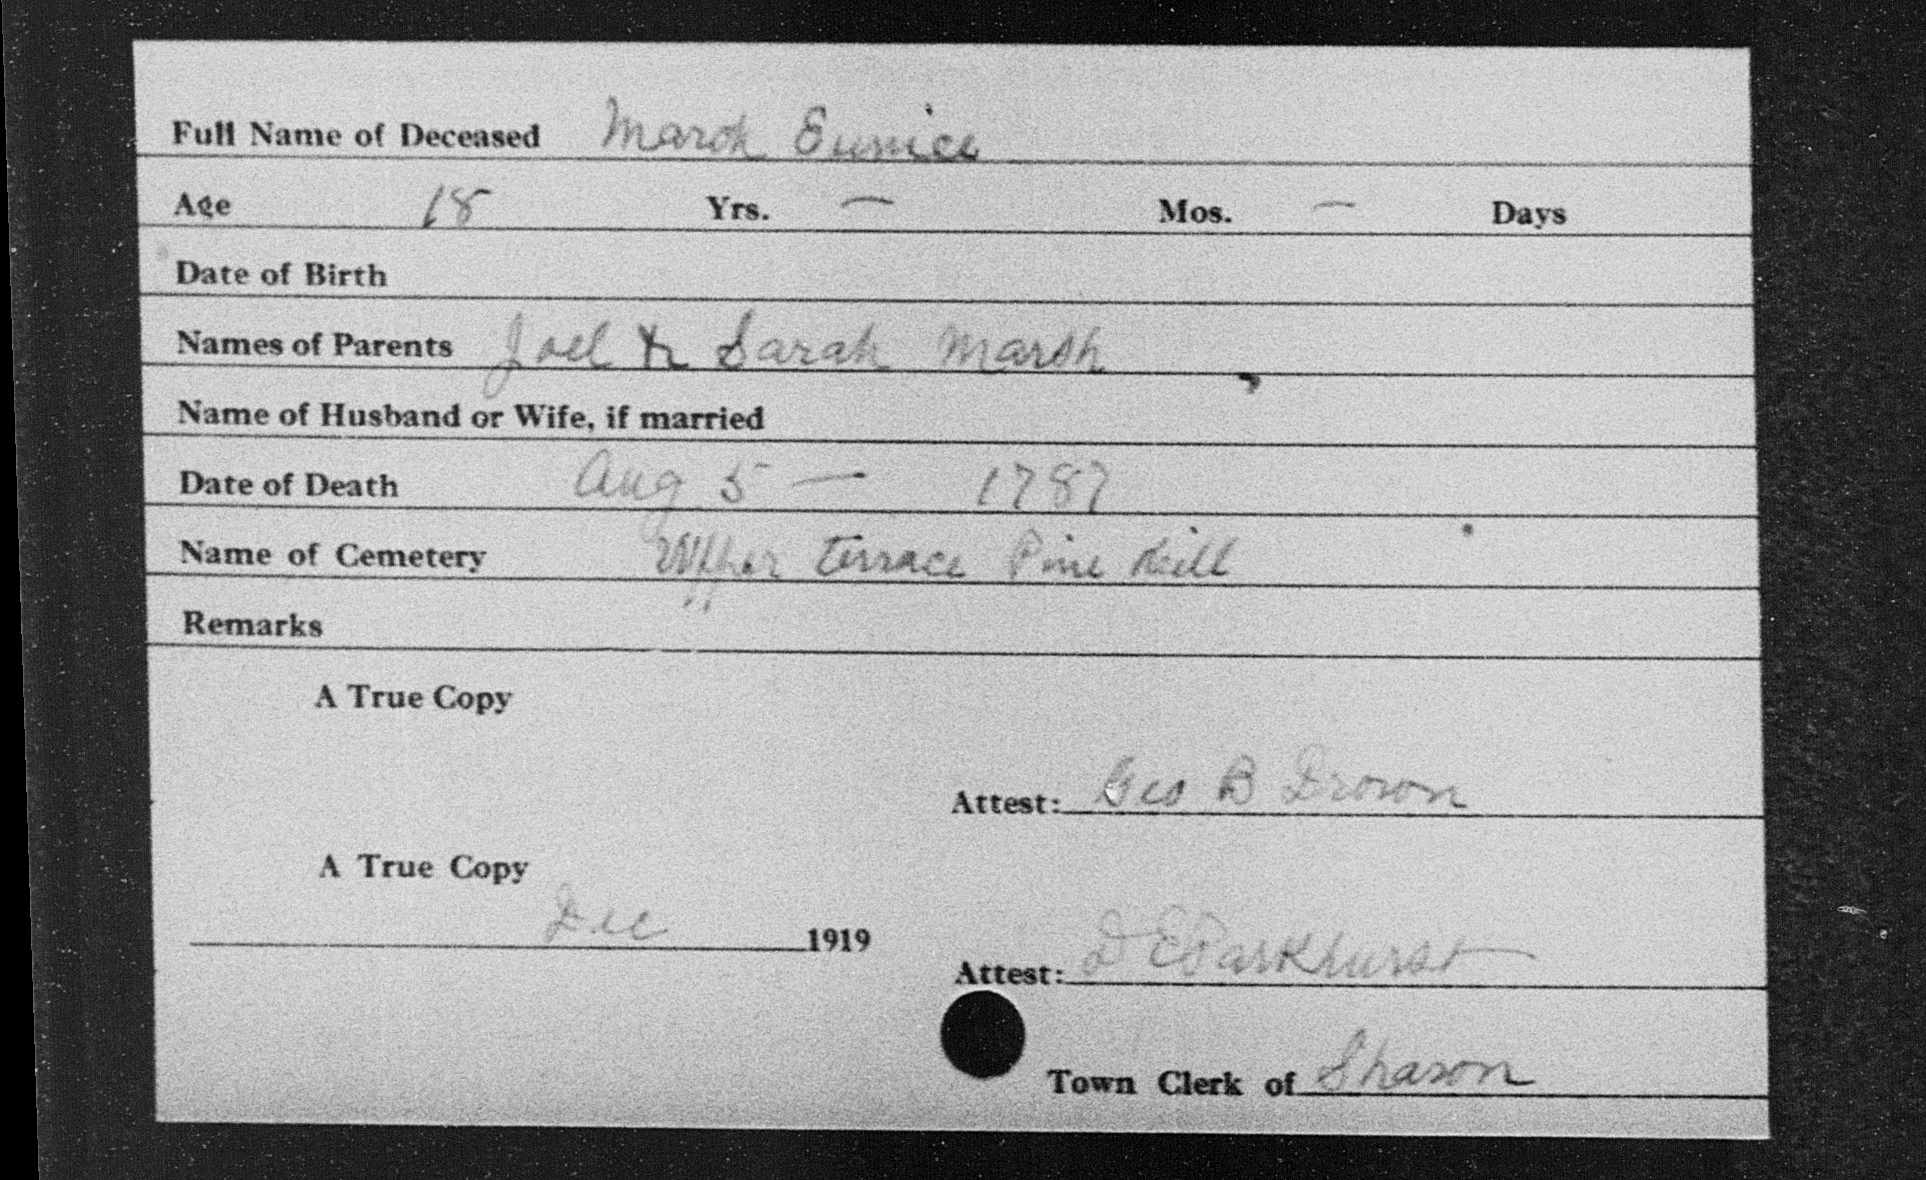 Full Name of Deceased Marsh Eunice
Age 18 Yrs. — Mos. — Days
Date of Birth
Names of Parents Joel & Sarah Marsh
Name of Husband or Wife, if married
Date of Death Aug 5 — 1787
Name of Cemetery Upper terrace Pine Hill
Remarks
A True Copy
Attest: Geo B Drown
A True Copy
Dec 1919
Attest: D E Parkhurst
Town Clerk of Sharon